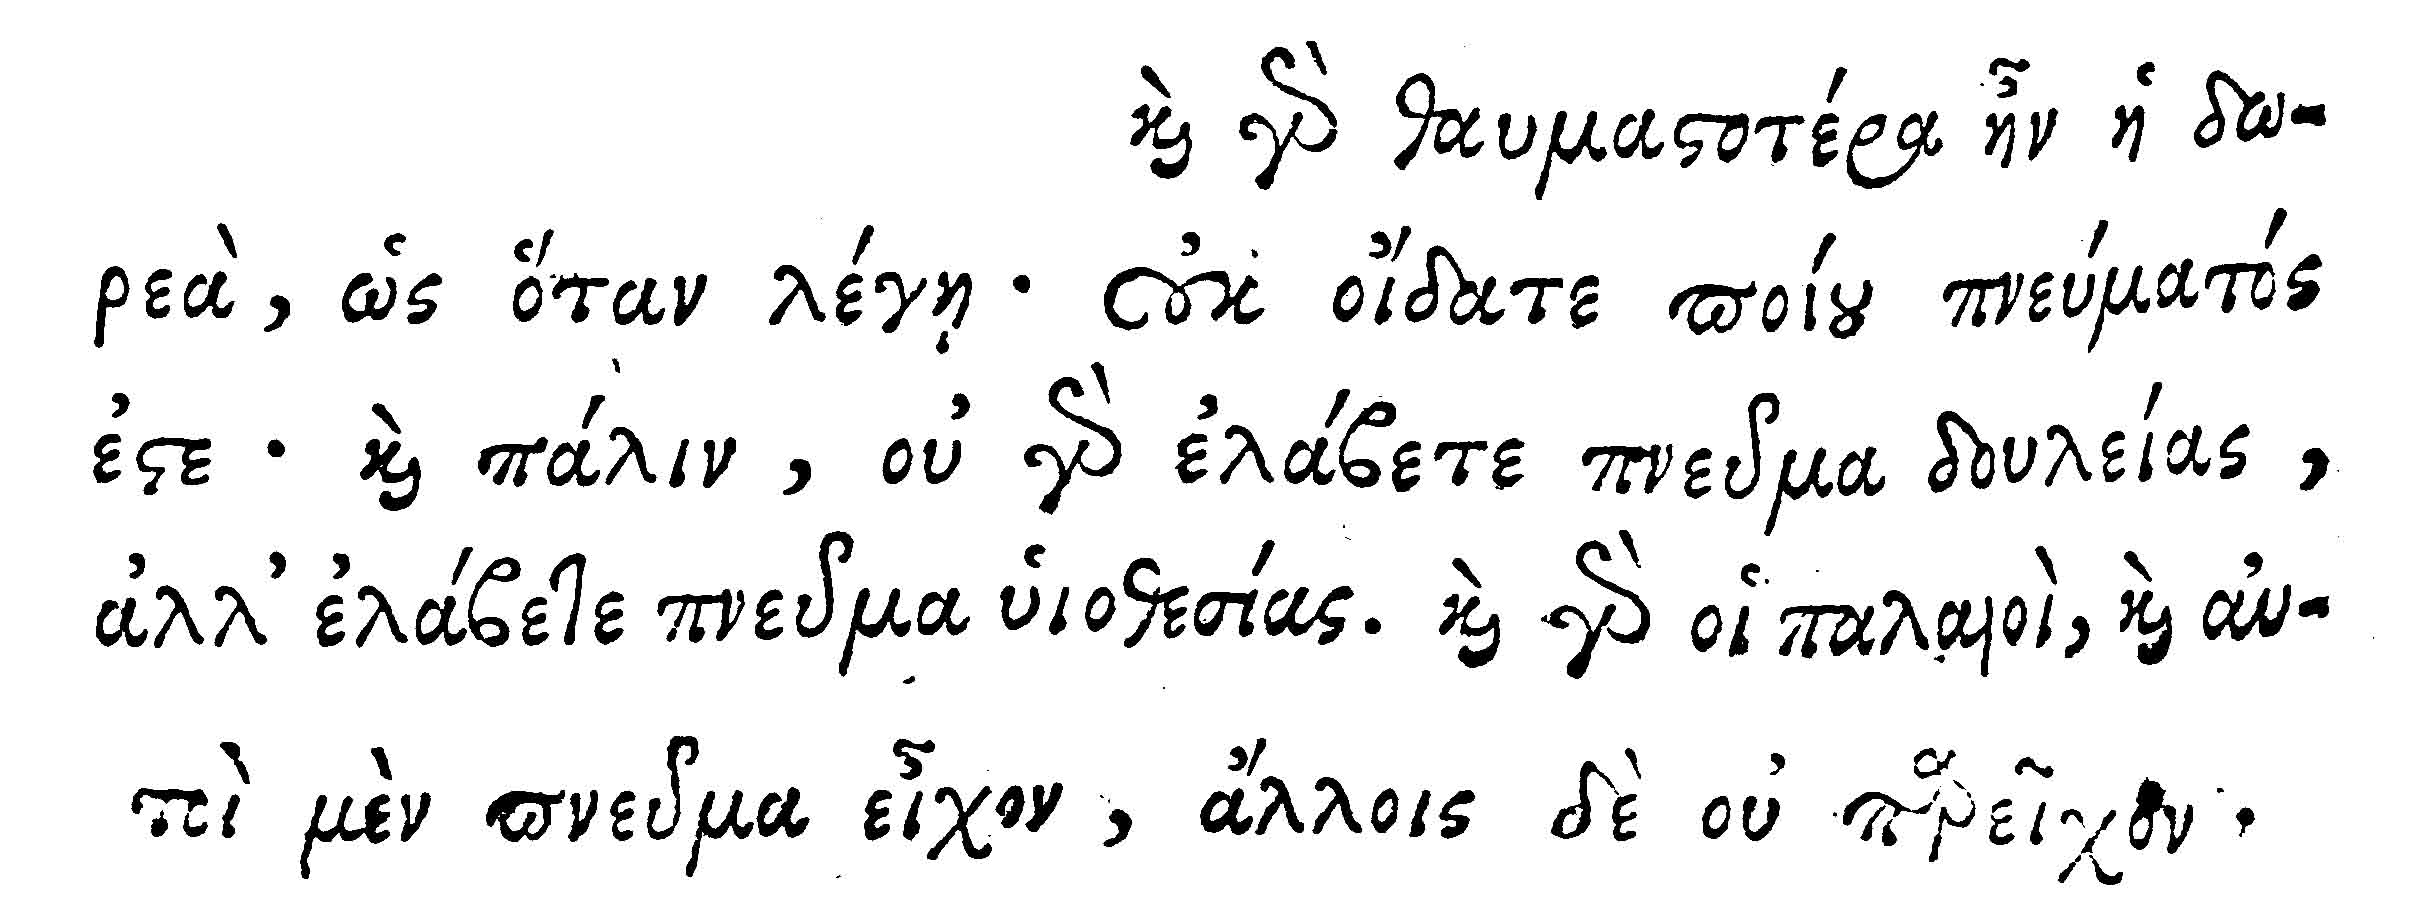 καὶ γὰρ θαυμαστοτέρα ἦν ἡ δω-
ρεὰ, ὡς ὅταν λέγῃ· Οὐκ οἴδατε ποίου πνεύματός
ἐστε· καὶ πάλιν, οὐ γὰρ ἐλάβετε πνεῦμα δουλείας,
ἀλλ' ἐλάβετε πνεῦμα υἱοθεσίας. καὶ γὰρ οἱ παλαιοὶ, καὶ αὐ-
τοὶ μὲν πνεῦμα εἶχον, ἄλλοις δὲ οὐ παρεῖχον.